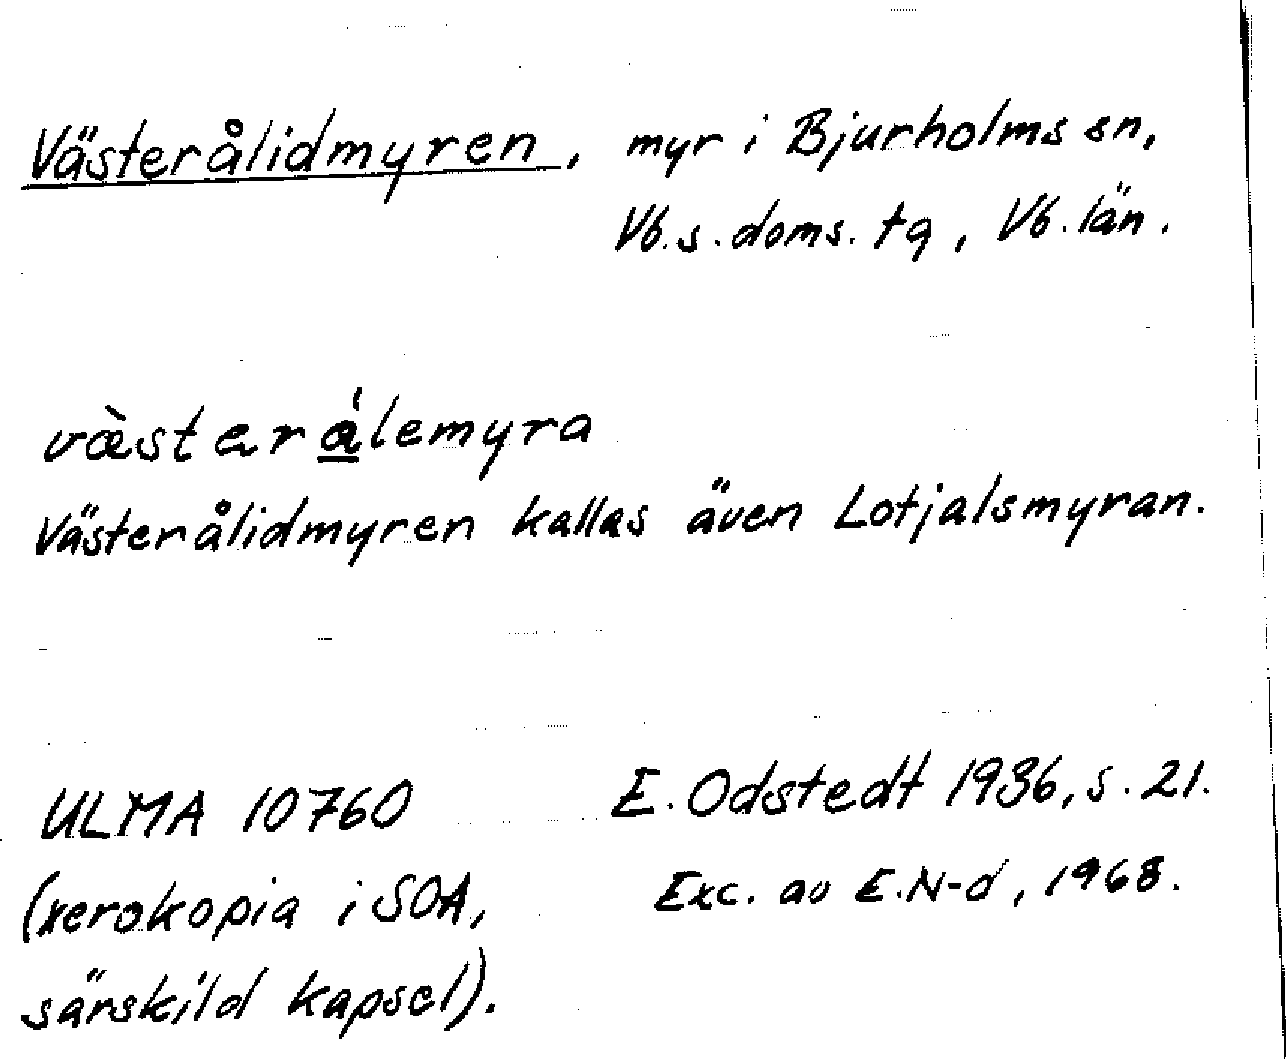 Västerålidmyren, myr i Bjurholms sn,
Vb. s. doms. tg, Vb. län.
væ̀sterá̱lemyra
Västerålidmyren kallas även Lotjalsmyran.
ULMA 10760 E. Odstedt 1936, s. 21.
(xerokopia i SOA, Exc. av E.N-d, 1968.
särskild kapsel).